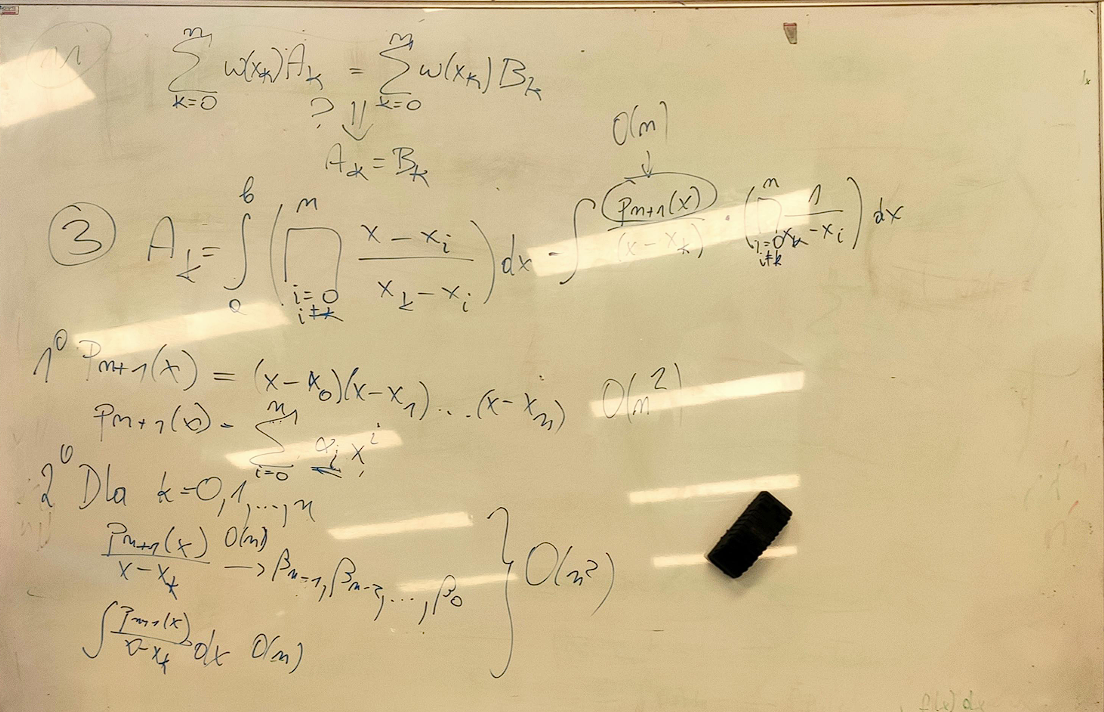 ∑_{k=0}^{n} w(x_k) A_k = ∑_{k=0}^{n} w(x_k) B_k
? ⇓
A_k = B_k
O(n)
↓
③ A_k = ∫_a^b ( ∏_{i=0, i≠k}^{n} (x - x_i)/(x_k - x_i) ) dx = ∫ P_{n+1}(x)/(x - x_k) · ( ∏_{i=0, i≠k}^{n} 1/(x_k - x_i) ) dx
1° P_{n+1}(x) = (x - x_0)(x - x_1) ... (x - x_n) O(n²)
P_{n+1}(x) = ∑_{i=0}^{n} α_i x^i
2° Dla k = 0, 1, ..., n
P_{n+1}(x)/(x - x_k) O(n) → β_{n-1}, β_{n-2}, ..., β_0 } O(n²)
∫ P_{n+1}(x)/(x - x_k) dx O(n)